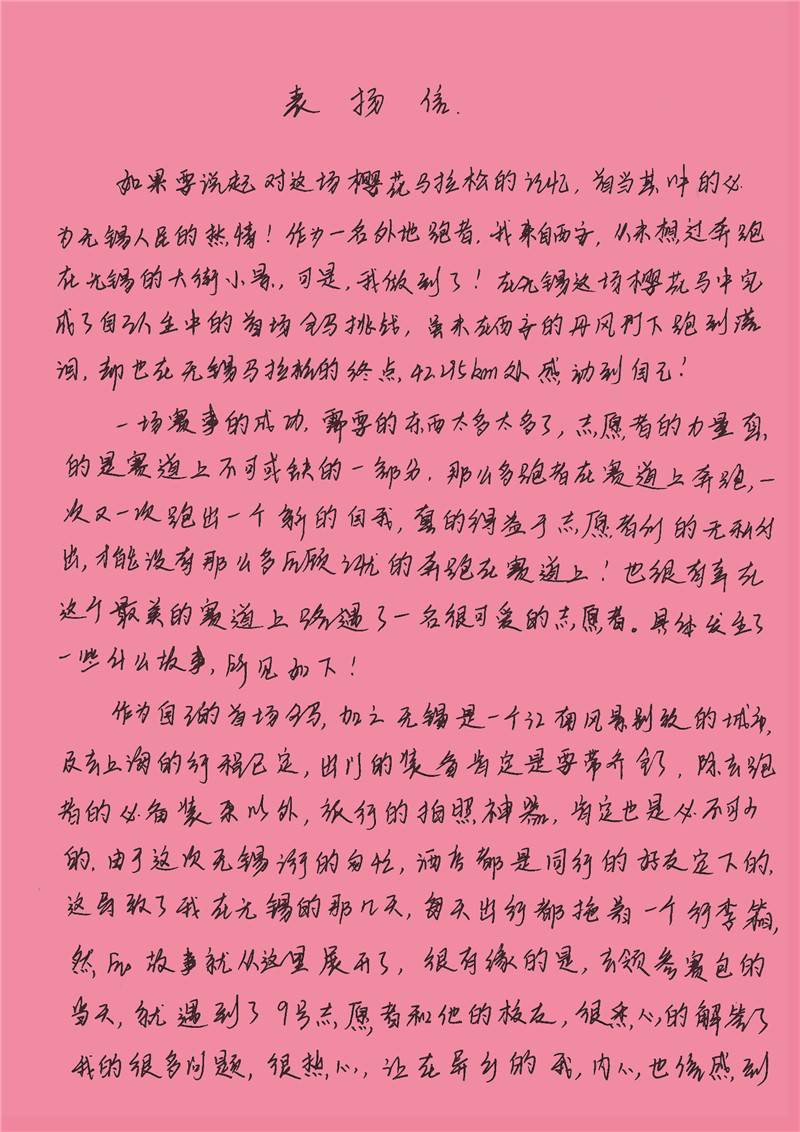 表扬信.
如果要说起对这场樱花马拉松的记忆,首当其冲的必
为无锡人民的热情!作为一名外地跑者,我来自西安,从未想过奔跑
在无锡的大街小景,可是,我做到了!在无锡这场樱花马中完
成了自己人生中的首场全马挑战,虽未在西安的丹风门下跑到落
泪,却也在无锡马拉松的终点,42.195km处感动到自己!
一场赛事的成功,需要的东西太多太多了,志愿者的力量真
的是赛道上不可或缺的一部分.那么多跑者在赛道上奔跑,一
次又一次跑出一个新的自我,真的得益于志愿者们的无私付
出,才能没有那么多后顾之忧的奔跑在赛道上!也很有幸在
这个最美的赛道上路遇了一名很可爱的志愿者。具体发生了
一些什么故事,所见如下!
作为自己的首场全马,加之无锡是一个江南风景别致的城市,
及去上海的行程已定,出门的装备肯定是要带齐全,除去跑
者的必备装束以外,旅行的拍照神器,肯定也是必不可少
的.由于这次无锡之行的匆忙,酒店都是同行的好友定下的,
这导致了我在无锡的那几天,每天出行都拖着一个行李箱,
然后故事就从这里展开了,很有缘的是,去领参赛包的
当天,就遇到了9号志愿者和他的校友,很悉心的解答了
我的很多问题,很热心,让在异乡的我,内心也倍感到